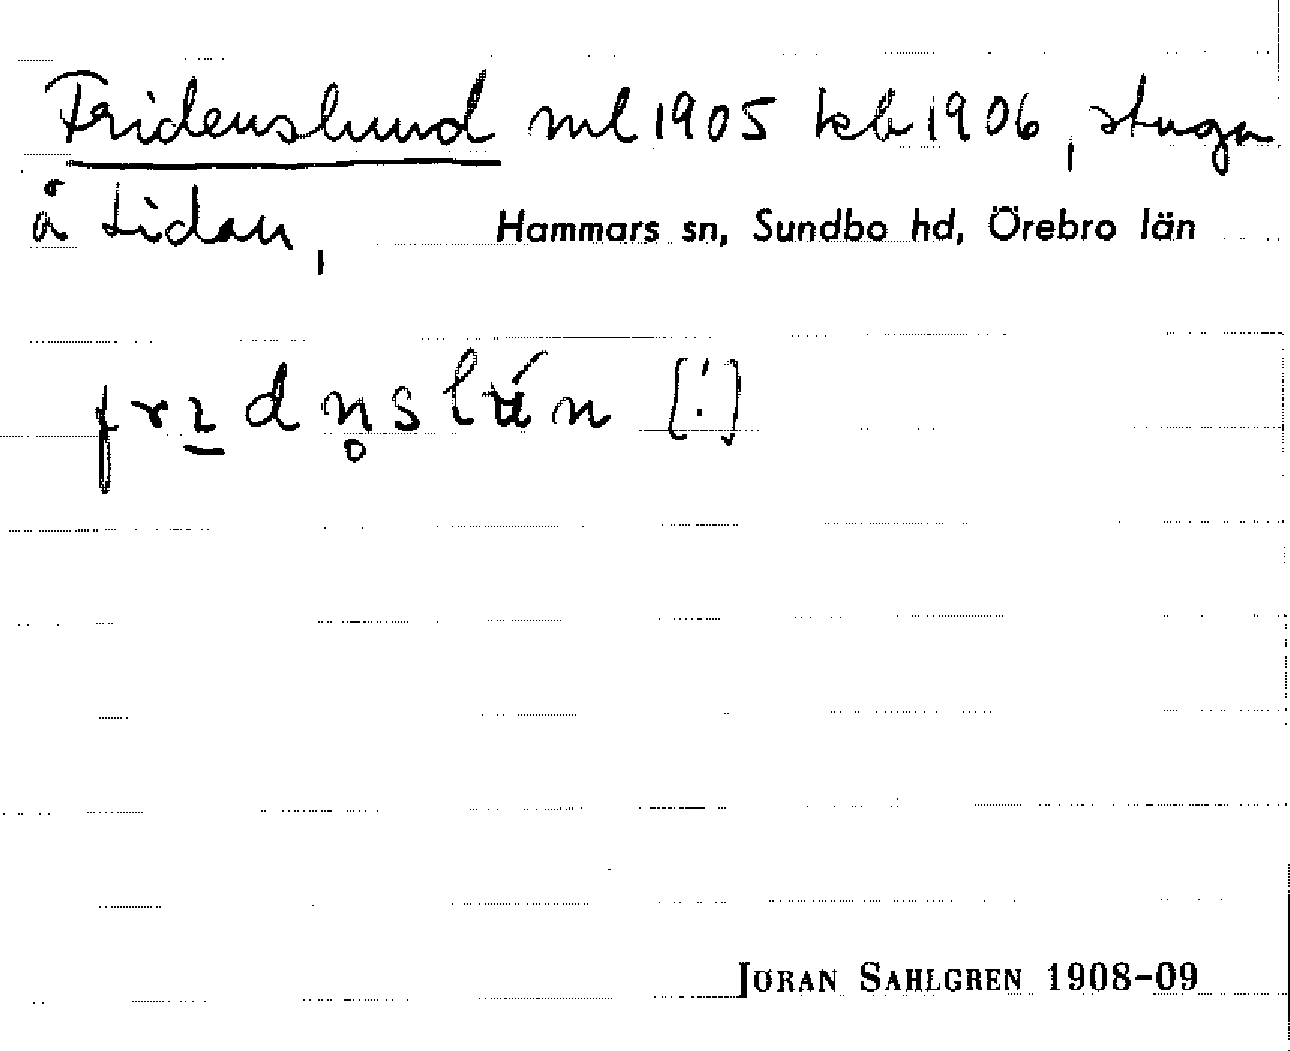 Fridenslund ml 1905 kb 1906, stuga
å Lidan, Hammars sn, Sundbo hd, Örebro län
frɩ̱dn̥slún [!]
JÖRAN SAHLGREN 1908-09